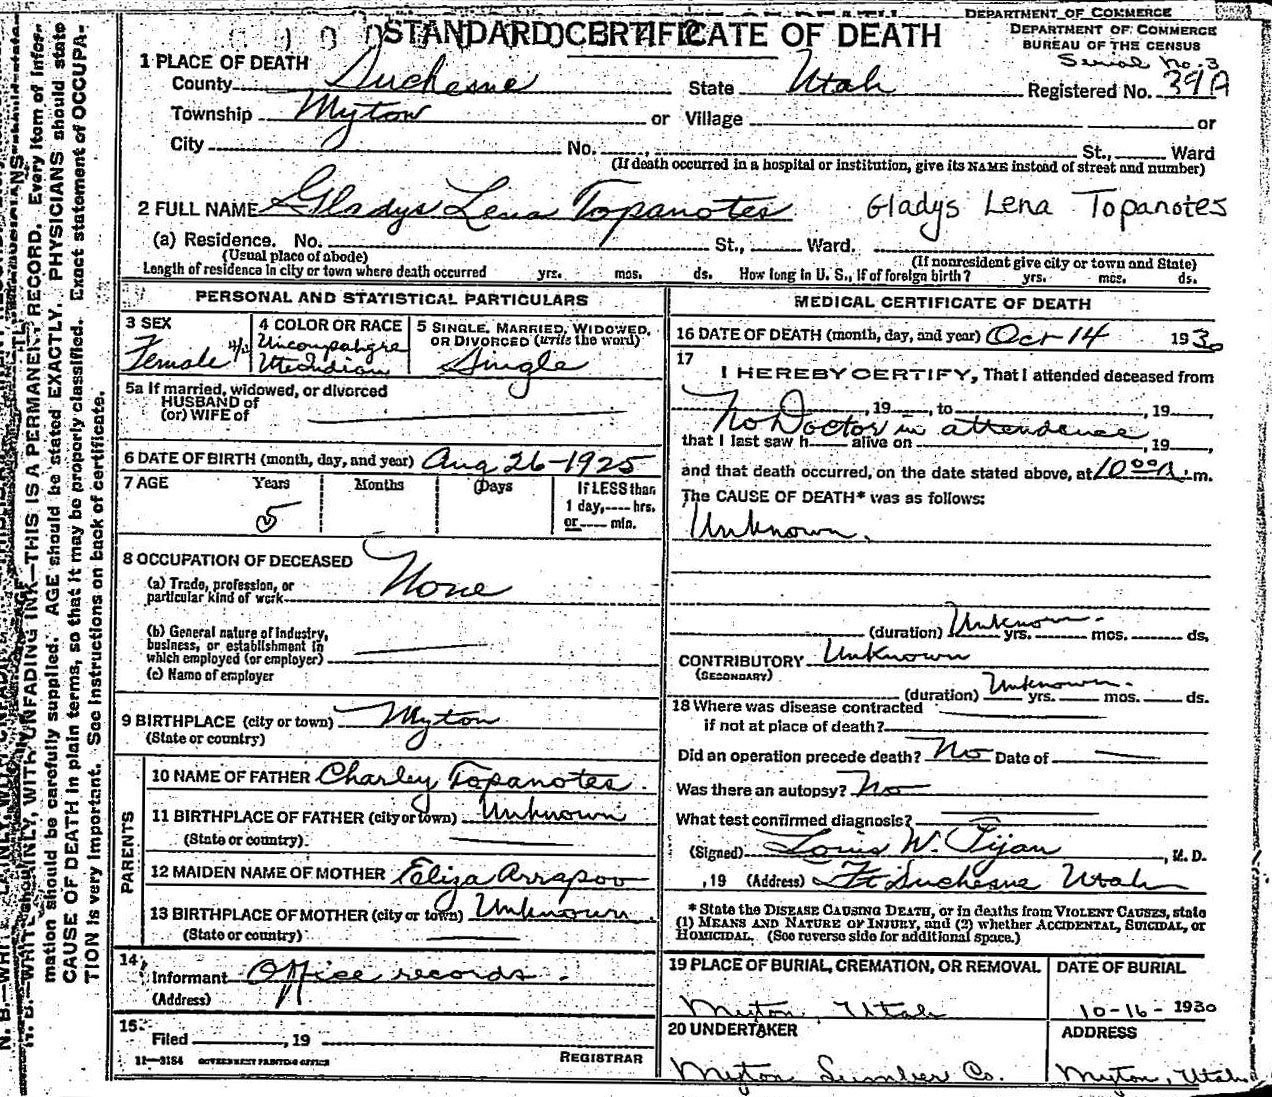 DEPARTMENT OF COMMERCE
STANDARD CERTIFICATE OF DEATH
DEPARTMENT OF COMMERCE
BUREAU OF THE CENSUS
Serial No. 3
1 PLACE OF DEATH
County Duchesne State Utah Registered No. 39A
Township Myton or Village or
City No. St., Ward
(If death occurred in a hospital or institution, give its NAME instead of street and number)
2 FULL NAME Gladys Lena Topanotes Gladys Lena Topanotes
(a) Residence. No. St., Ward.
(Usual place of abode) (If nonresident give city or town and State)
Length of residence in city or town where death occurred yrs. mos. ds. How long in U. S., if of foreign birth? yrs. mos. ds.
PERSONAL AND STATISTICAL PARTICULARS
3 SEX
Female
4 COLOR OR RACE
4/4 Uncompahgre
Ute Indian
5 SINGLE, MARRIED, WIDOWED,
OR DIVORCED (write the word)
Single
5a If married, widowed, or divorced
HUSBAND of
(or) WIFE of
6 DATE OF BIRTH (month, day, and year) Aug 26-1925
7 AGE Years Months Days If LESS than
1 day, hrs.
5 or min.
8 OCCUPATION OF DECEASED
None
(a) Trade, profession, or
particular kind of work
(b) General nature of industry,
business, or establishment in
which employed (or employer)
(c) Name of employer
9 BIRTHPLACE (city or town) Myton
(State or country)
PARENTS
10 NAME OF FATHER Charley Topanotes
11 BIRTHPLACE OF FATHER (city or town) Unknown
(State or country)
12 MAIDEN NAME OF MOTHER Eliza Arrapoo
13 BIRTHPLACE OF MOTHER (city or town) Unknown
(State or country)
14
Informant Office records
(Address)
15
Filed , 19
REGISTRAR
11—3184 GOVERNMENT PRINTING OFFICE
MEDICAL CERTIFICATE OF DEATH
16 DATE OF DEATH (month, day, and year) Oct 14 1930
17
I HEREBY CERTIFY, That I attended deceased from
, 19 , to , 19 ,
No Doctor in attendence
that I last saw h alive on , 19 ,
and that death occurred, on the date stated above, at 10:00 A. m.
The CAUSE OF DEATH* was as follows:
Unknown.
(duration) Unknown. yrs. mos. ds.
CONTRIBUTORY Unknown
(SECONDARY)
(duration) Unknown. yrs. mos. ds.
18 Where was disease contracted
if not at place of death?
Did an operation precede death? No Date of
Was there an autopsy? No
What test confirmed diagnosis?
(Signed) Louis W. Pijan , M. D.
, 19 (Address) Ft Duchesne Utah
* State the DISEASE CAUSING DEATH, or in deaths from VIOLENT CAUSES, state
(1) MEANS AND NATURE OF INJURY, and (2) whether ACCIDENTAL, SUICIDAL, or
HOMICIDAL. (See reverse side for additional space.)
19 PLACE OF BURIAL, CREMATION, OR REMOVAL
Myton, Utah
DATE OF BURIAL
10-16-1930
20 UNDERTAKER
Myton Lumber Co.
ADDRESS
Myton, Utah
N. B.—WRITE PLAINLY, WITH UNFADING INK—THIS IS A PERMANENT RECORD. Every item of infor-
mation should be carefully supplied. AGE should be stated EXACTLY. PHYSICIANS should state
CAUSE OF DEATH in plain terms, so that it may be properly classified. Exact statement of OCCUPA-
TION is very important. See instructions on back of certificate.